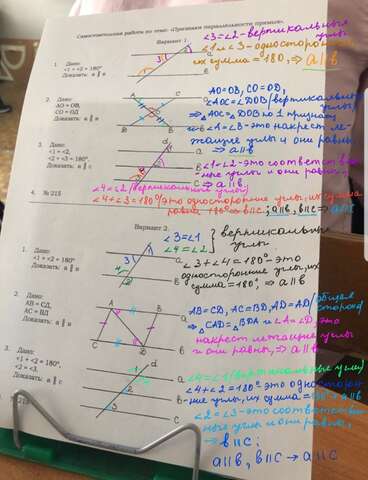 Самостоятельная работа по теме: «Признаки параллельности прямых».
Вариант 1.
∠3=∠2-вертикальные углы
∠1 и ∠3-односторонние,
их сумма =180°, ⇒ a∥b
1. Дано:
∠1 + ∠2 = 180°
Доказать: a ∥ b
2. Дано:
AO = OB,
CO = OD
Доказать: a ∥ b
AO=OB, CO=OD,
∠AOC=∠DOB(вертикальные углы)
⇒ △AOC=△DOB по 1 признаку
⇒∠A=∠B-это накрест ле-
жащие углы и они равны
⇒ a∥b
3. Дано:
∠1 = ∠2,
∠2 + ∠3 = 180°.
Доказать: a ∥ c
∠1=∠2-это соответствен-
ные углы и они равны
⇒ a∥b
4. № 215
∠4=∠2(вертикальные углы)
∠4+∠3=180°(это односторонние углы, их сумма
равна 180° ⇒ b∥c; a∥b, b∥c ⇒ a∥c
Вариант 2.
1. Дано:
∠1 + ∠2 = 180°
Доказать: a ∥ b
∠3=∠1
∠4=∠2
вертикальные
углы.
∠3+∠4=180°-это
односторонние углы, их
сумма=180°, ⇒ a∥b
2. Дано:
AB = CD,
AC = BD
Доказать: a ∥ b
AB=CD, AC=BD, AD=AD(общая
сторона)
⇒ △CAD=△BDA ⇒∠A=∠D, это
накрест лежащие углы
и они равны, ⇒ a∥b
3. Дано:
∠1 + ∠2 = 180°,
∠2 = ∠3.
Доказать: a ∥ c
∠4=∠1(вертикальные углы)
∠4+∠2=180°-это односторон-
ние углы, их сумма=180° ⇒ a∥b
∠2=∠3-это соответствен-
ные углы и они равны,
⇒ b∥c;
a∥b, b∥c ⇒ a∥c